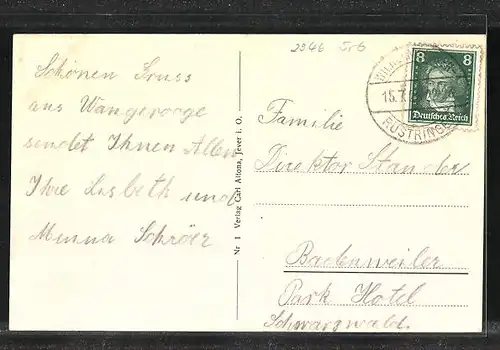 2946 5r6
Schönen Gruss
aus Wangerooge
sendet Ihnen Allen
Ihre Lisbeth und
Menna Schröer
Nr 1 Verlag Carl Altona, Jever i. O.
8 8
Deutsches Reich
15.7.
RÜSTRINGEN
Familie
Direktor Stander
Badenweiler
Park Hotel
Schwarzwald.